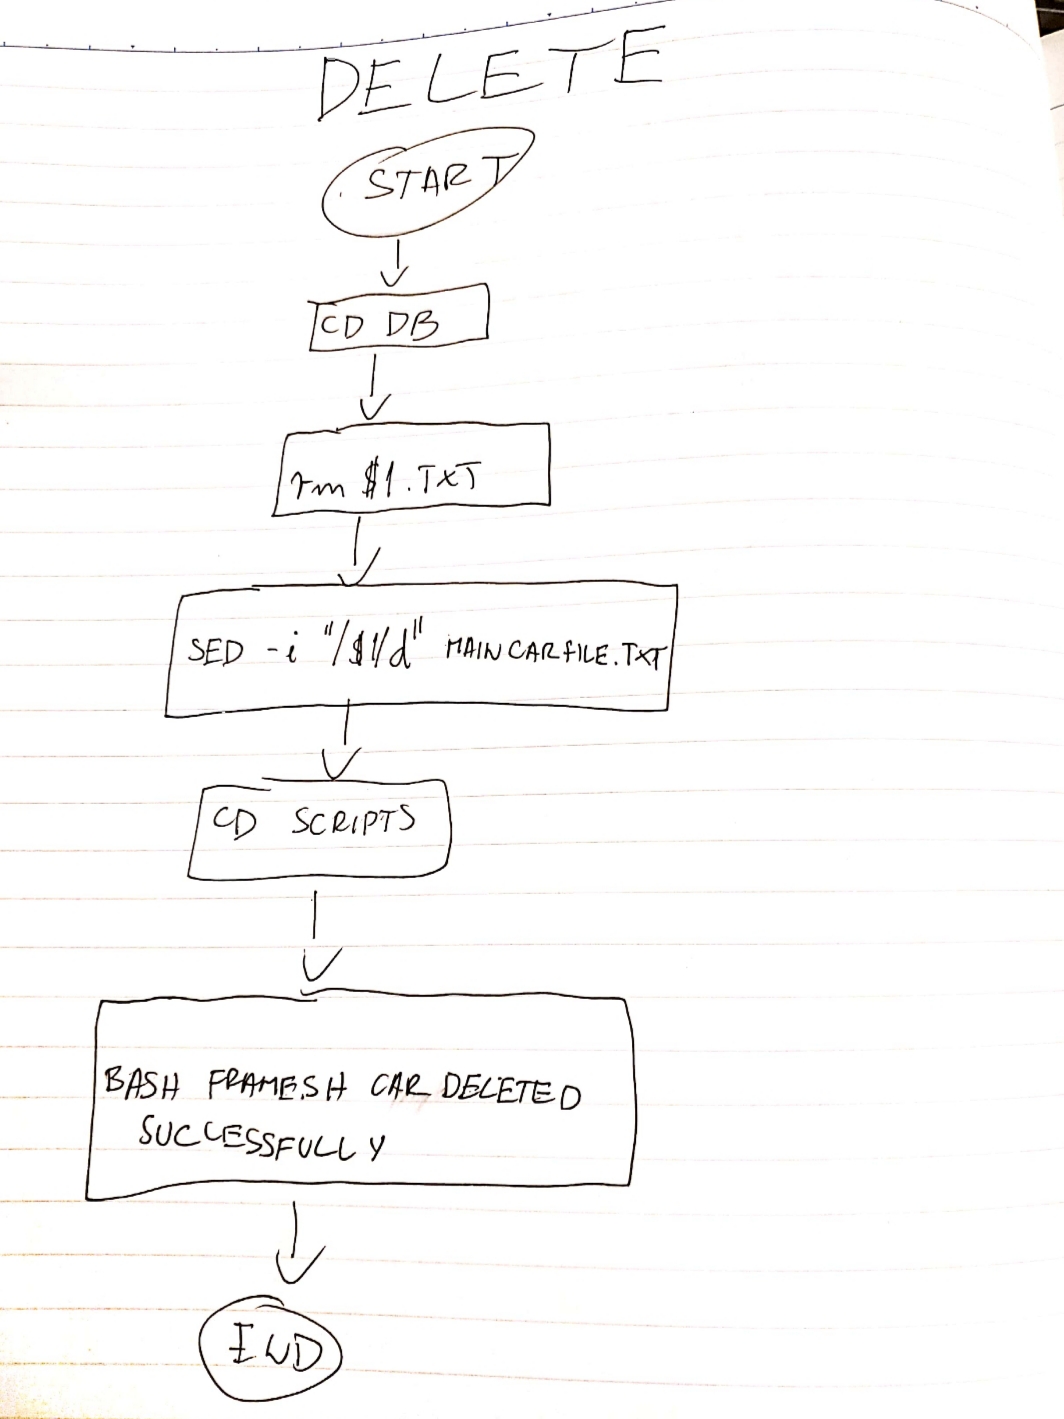 DELETE
START
CD DB
rm $1.TXT
SED -i "/$1/d" MAINCARFILE.TXT
CD SCRIPTS
BASH FRAME.SH CAR DELETED
SUCCESSFULLY
END